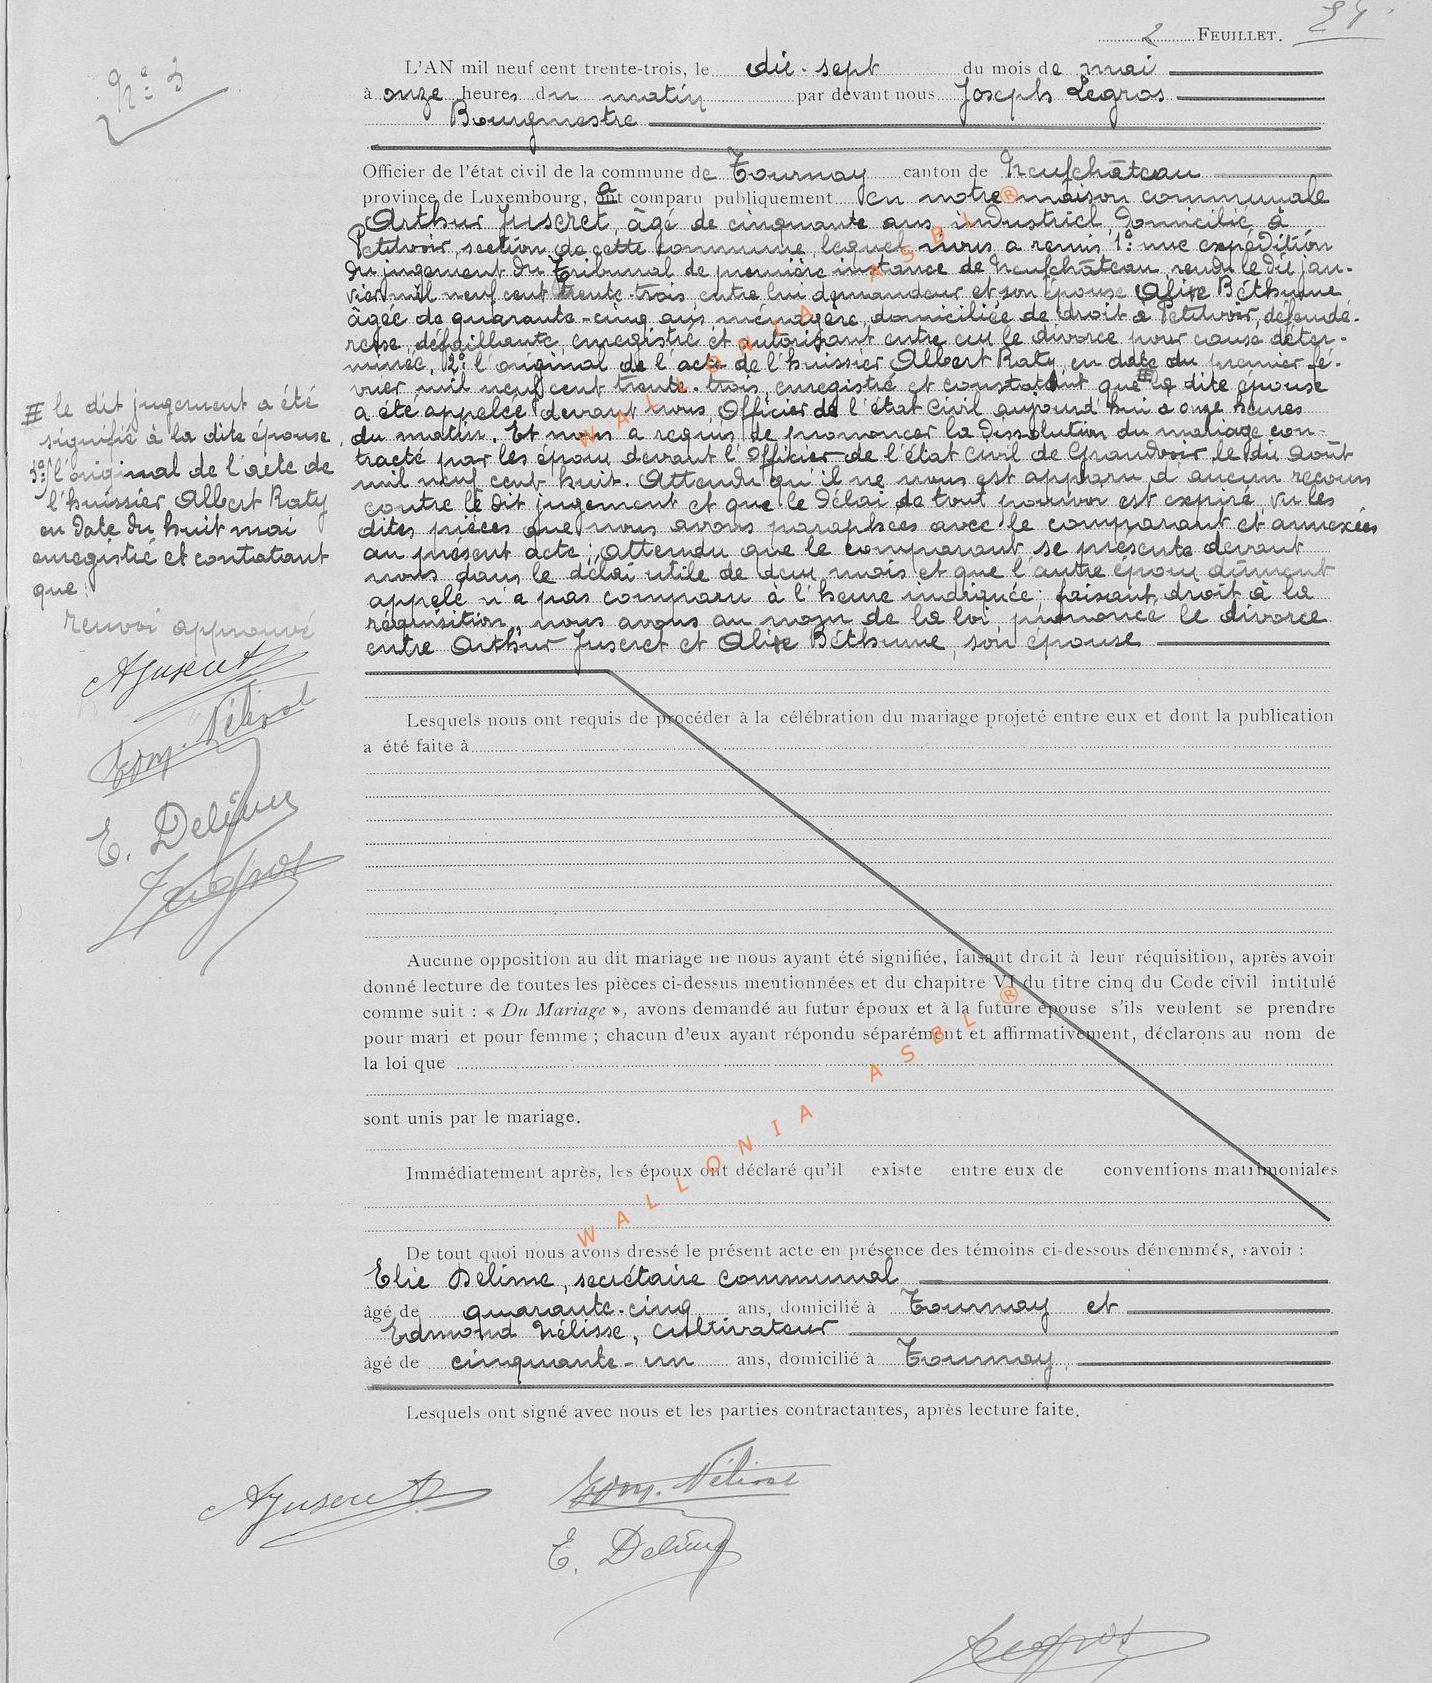 2 FEUILLET.
N° 3
L'AN mil neuf cent trente-trois, le dix-sept du mois de mai
à onze heures du matin par devant nous Joseph Legros
Bourgmestre
Officier de l'état civil de la commune de Tournay canton de Neufchâteau
province de Luxembourg, a comparu publiquement en notre maison communale
Arthur Juseret, âgé de cinquante ans, industriel, domicilié à
Petitvoir, section de cette commune, lequel nous a remis 1° une expédition
du jugement du Tribunal de première instance de Neufchâteau, rendu le dix jan-
vier mil neuf cent trente-trois entre lui demandeur et son épouse Alixe Béthume
âgée de quarante-cinq ans, ménagère, domiciliée de droit à Petitvoir, défende-
resse, défaillante, enregistré et autorisant entre eux le divorce pour cause déter-
minée, 2° l'original de l'acte de l'huissier Albert Raty, en date du premier fé-
vrier mil neuf cent trente-trois, enregistré et constatant que la dite épouse
a été appelée devant nous Officier de l'état civil aujourd'hui à onze heures
du matin. Et nous a requis de prononcer la dissolution du mariage con-
tracté par les époux devant l'Officier de l'état civil de Grandvoir le dix août
mil neuf cent huit. Attendu qu'il ne nous est apparu d'aucun recours
contre le dit jugement et que le délai de tout pourvoi est expiré, vu les
dites pièces que nous avons paraphées avec le comparant et annexées
au présent acte, attendu que le comparant se présente devant
nous dans le délai utile de deux mois et que l'autre époux dûment
appelé n'a pas comparu à l'heure indiquée; faisant droit à la
réquisition, nous avons au nom de la loi, prononcé le divorce
entre Arthur Juseret et Alixe Béthume, son épouse
le dit jugement a été
signifié à la dite épouse,
3° l'original de l'acte de
l'huissier Albert Raty
en date du huit mai
enregistré et contatant
que
renvoi approuvé
A Juseret
Edm. Nélisse
E. Delime
Legros
Lesquels nous ont requis de procéder à la célébration du mariage projeté entre eux et dont la publication
a été faite à
Aucune opposition au dit mariage ne nous ayant été signifiée, faisant droit à leur réquisition, après avoir
donné lecture de toutes les pièces ci-dessus mentionnées et du chapitre VI du titre cinq du Code civil intitulé
comme suit : « Du Mariage », avons demandé au futur époux et à la future épouse s'ils veulent se prendre
pour mari et pour femme ; chacun d'eux ayant répondu séparément et affirmativement, déclarons au nom de
la loi que
sont unis par le mariage.
Immédiatement après, les époux ont déclaré qu'il existe entre eux de conventions matrimoniales
De tout quoi nous avons dressé le présent acte en présence des témoins ci-dessous dénommés, savoir :
Elie Delime, secrétaire communal
âgé de quarante-cinq ans, domicilié à Tournay et
Edmond Nélisse, cultivateur
âgé de cinquante-un ans, domicilié à Tournay
Lesquels ont signé avec nous et les parties contractantes, après lecture faite.
A Juseret
Edm. Nélisse
E. Delime
Legros
WALLONIA ASBL ®
WALLONIA ASBL ®